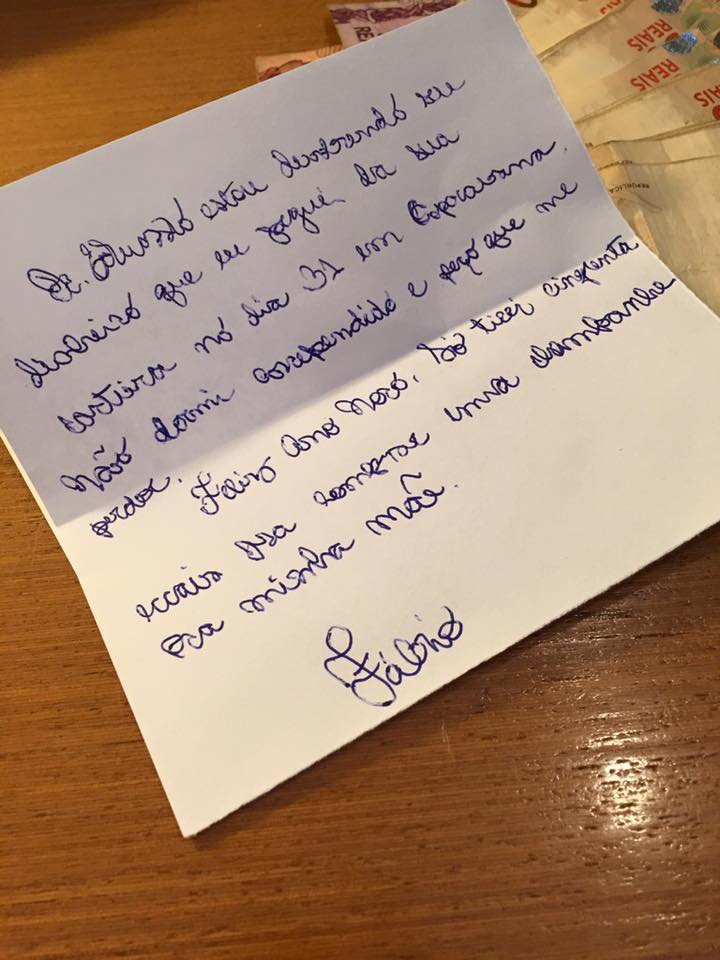 Sr. Eduardo estou devolvendo seu
dinheiro que eu peguei da sua
carteira no dia 31 em Copacabana.
Não dormi arrependido e peço que me
perdoe. Feliz Ano Novo. Só tirei cinquenta
reais pra comprar uma champanhe
pra minha mãe.
Fábio
REAIS
REAIS
REAIS
REPÚBLICA